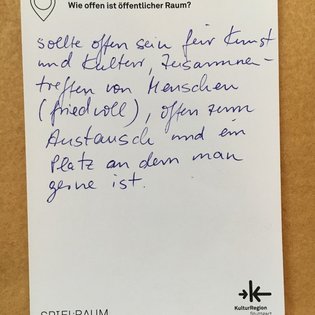 Wie offen ist öffentlicher Raum?
sollte offen sein für Kunst
und Kultur, Zusammen-
treffen von Menschen
(friedvoll), offen zum
Austausch und ein
Platz an dem man
gerne ist.
KulturRegion
Stuttgart
SPIEL:RAUM